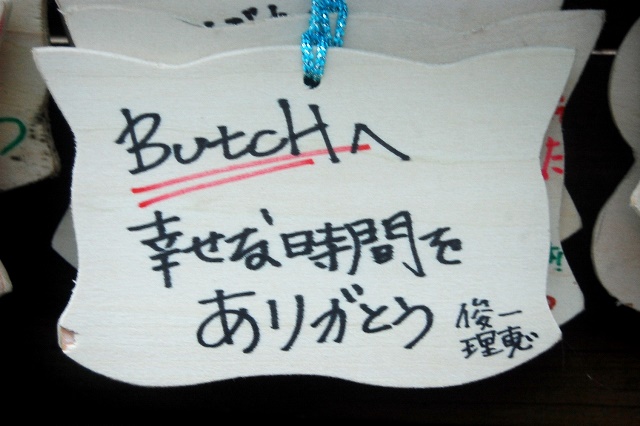 ButcHへ
幸せな時間を
ありがとう
俊一
理恵